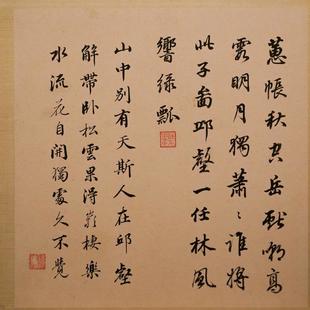 蕙帳秋空岳高
露明月獨蕭〻誰將
此子啚邱壑一任林風
響綠瓢
山中別有天斯人在邱壑
解帶臥松雲果得巖棲樂
水流花自開獨處久不覺